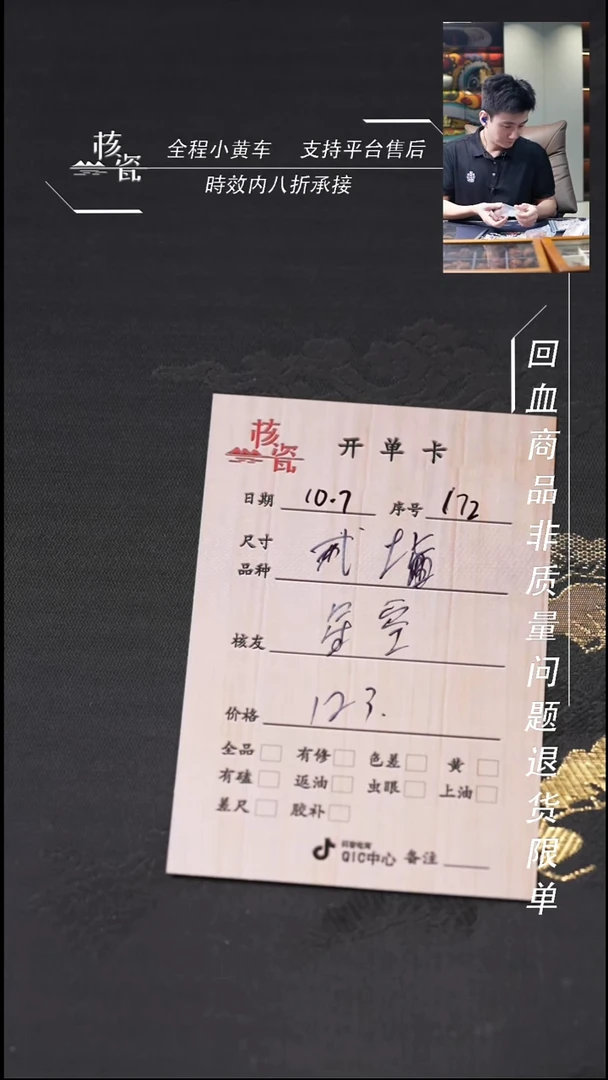 核瓷
全程小黄车 支持平台售后
時效内八折承接
回血商品非质量问题退货限单
核瓷
开单卡
日期 10.7 序号 172
尺寸
品种
核友 星空
价格 123.
全品 有修 色差 黄
有磕 返油 虫眼 上油
差尺 胶补
抖音电商
QIC中心 备注